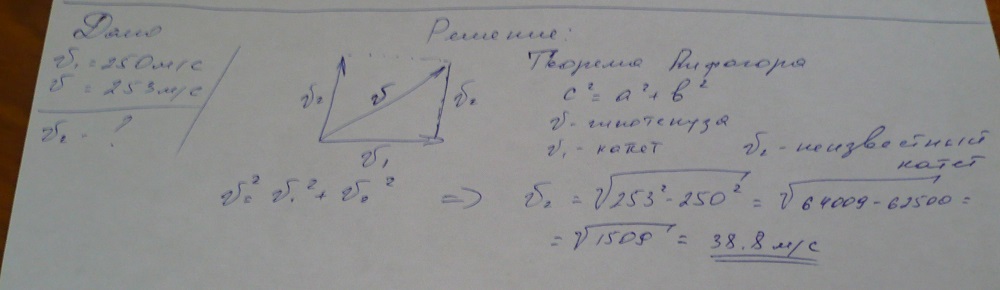 Дано
Решение:
V₁ = 250 м/с
V = 253 м/с
V₂ - ?
V₂
V
V₂
V₁
Теорема Пифагора
c² = a² + b²
V - гипотенуза
V₁ - катет
V₂ - неизвестный катет
V² = V₁² + V₂² => V₂ = √253² - 250² = √64009 - 62500 =
= √1509 = 38.8 м/с